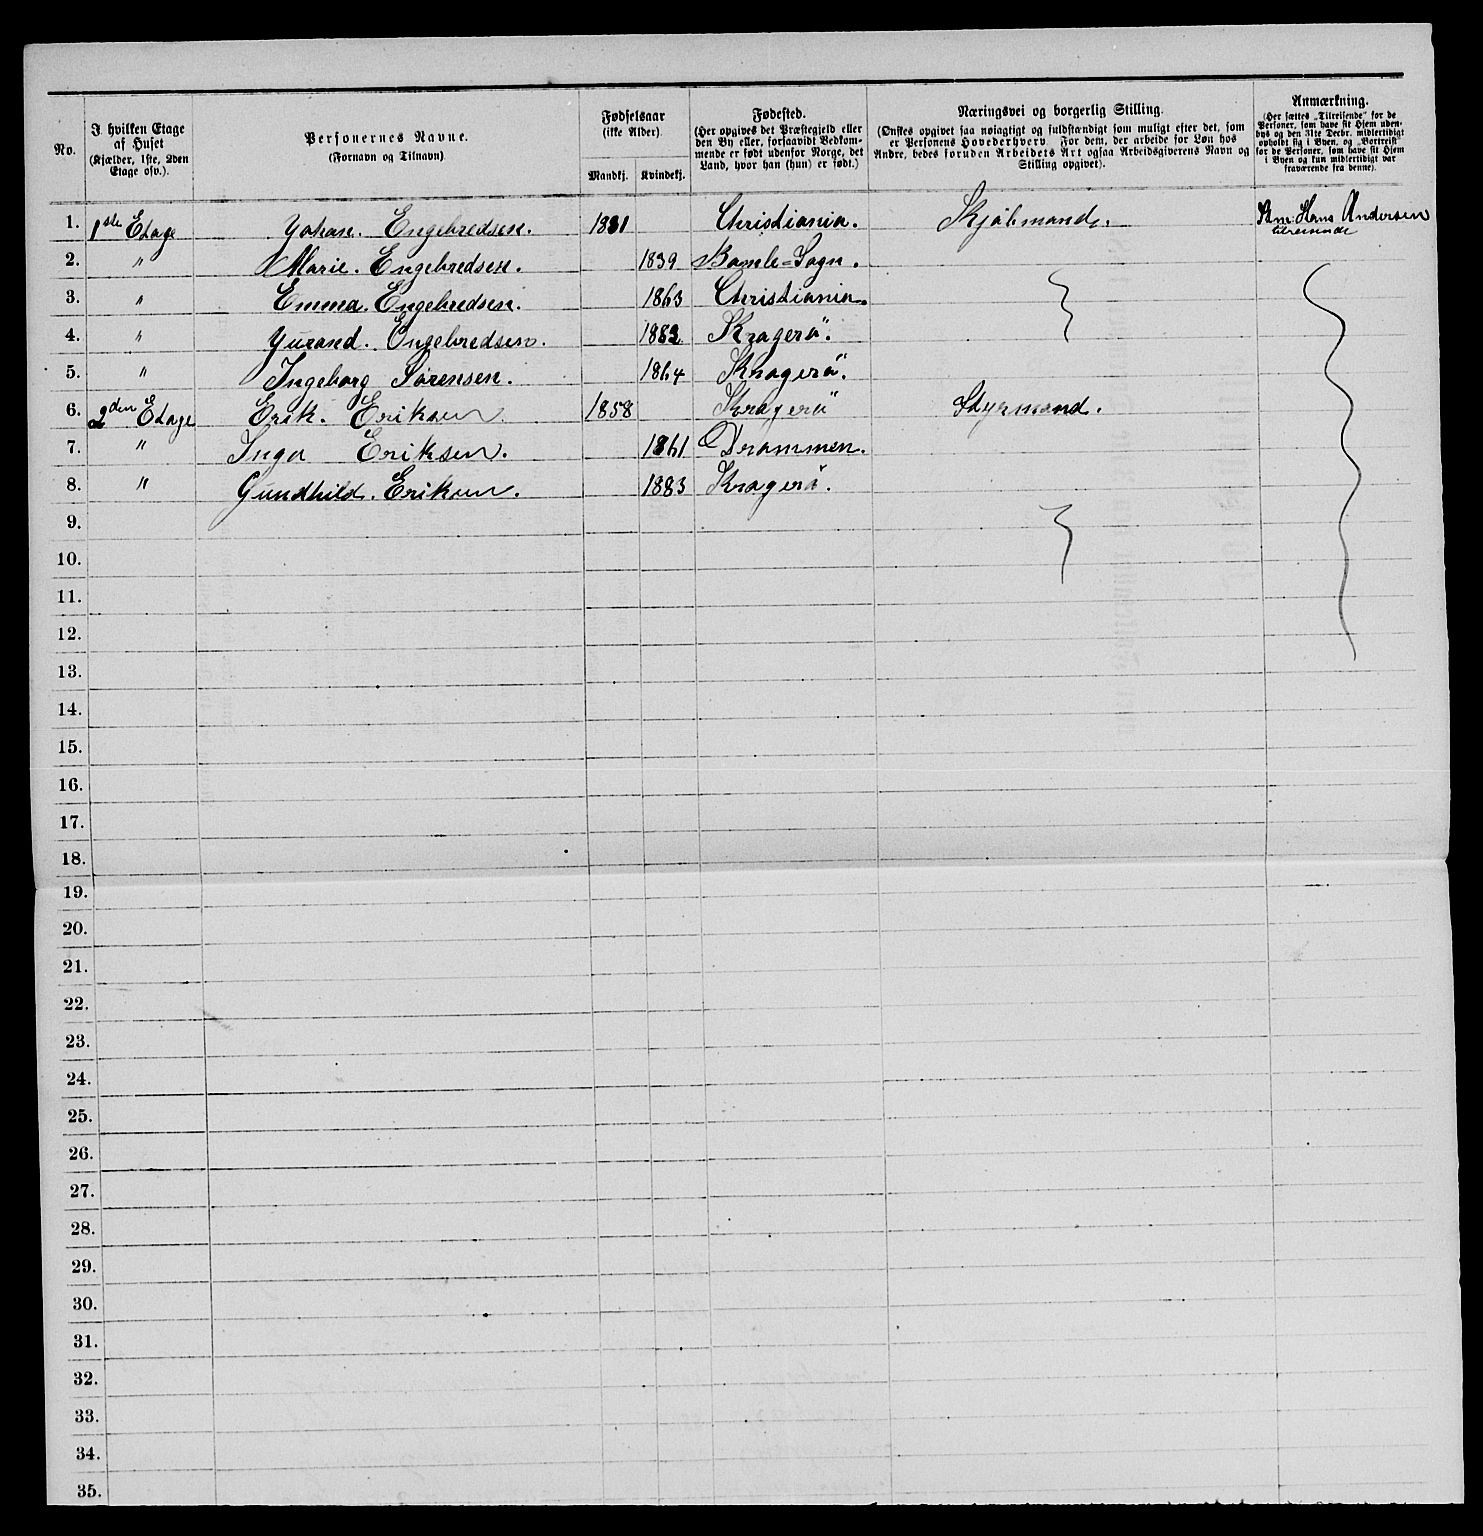 No.
I hvilken Etage
af Huset
(Kjælder, 1ste, 2den
Etage osv.).
Personernes Navne.
(Fornavn og Tilnavn)
Fødselsaar
(ikke Alder)
Mandkj.
Kvindekj.
Fødested.
(Her opgives det Præstegjeld eller
den By eller, forsaavidt Vedkom-
mende er født udenfor Norge, det
Land, hvor han (hun) er født.)
Næringsvei og borgerlig Stilling.
(Ønskes opgivet saa nøiagtigt og fuldstændigt som muligt efter det, som
er Personens Hovederhverv. For dem, der arbeide for Løn hos
Andre, bedes foruden Arbeidets Art ogsaa Arbeidsgiverens Navn og
Stilling opgivet).
Anmærkning.
(Her sættes „Tilreisende" for de
Personer, som have sit Hjem uden-
bys og den 31te Decbr. midlertidigt
opholdt sig i Byen, og „Bortreist"
for de Personer, som have sit Hjem
i Byen og kun midlertidigt var
fraværende fra denne).
1. 1ste Etage Johan. Engebredsen. 1831 Christiania. Hans Andersen
tilreisende
2. " Marie. Engebredsen. 1839 Bamle=Sogn.
3. " Emma. Engebredsen. 1863 Christiania.
4. " Engebredsen. 1882 Kragerö.
5. " Ingeborg Sörensen. 1864 Kragerö.
6. 2den Etage Erik. Eriksen. 1858 Kragerö Styrmand.
7. " Inga Eriksen. 1861 Drammen.
8. " Gundhild. Eriksen. 1883 Kragerö.
9.
10.
11.
12.
13.
14.
15.
16.
17.
18.
19.
20.
21.
22.
23.
24.
25.
26.
27.
28.
29.
30.
31.
32.
33.
34.
35.